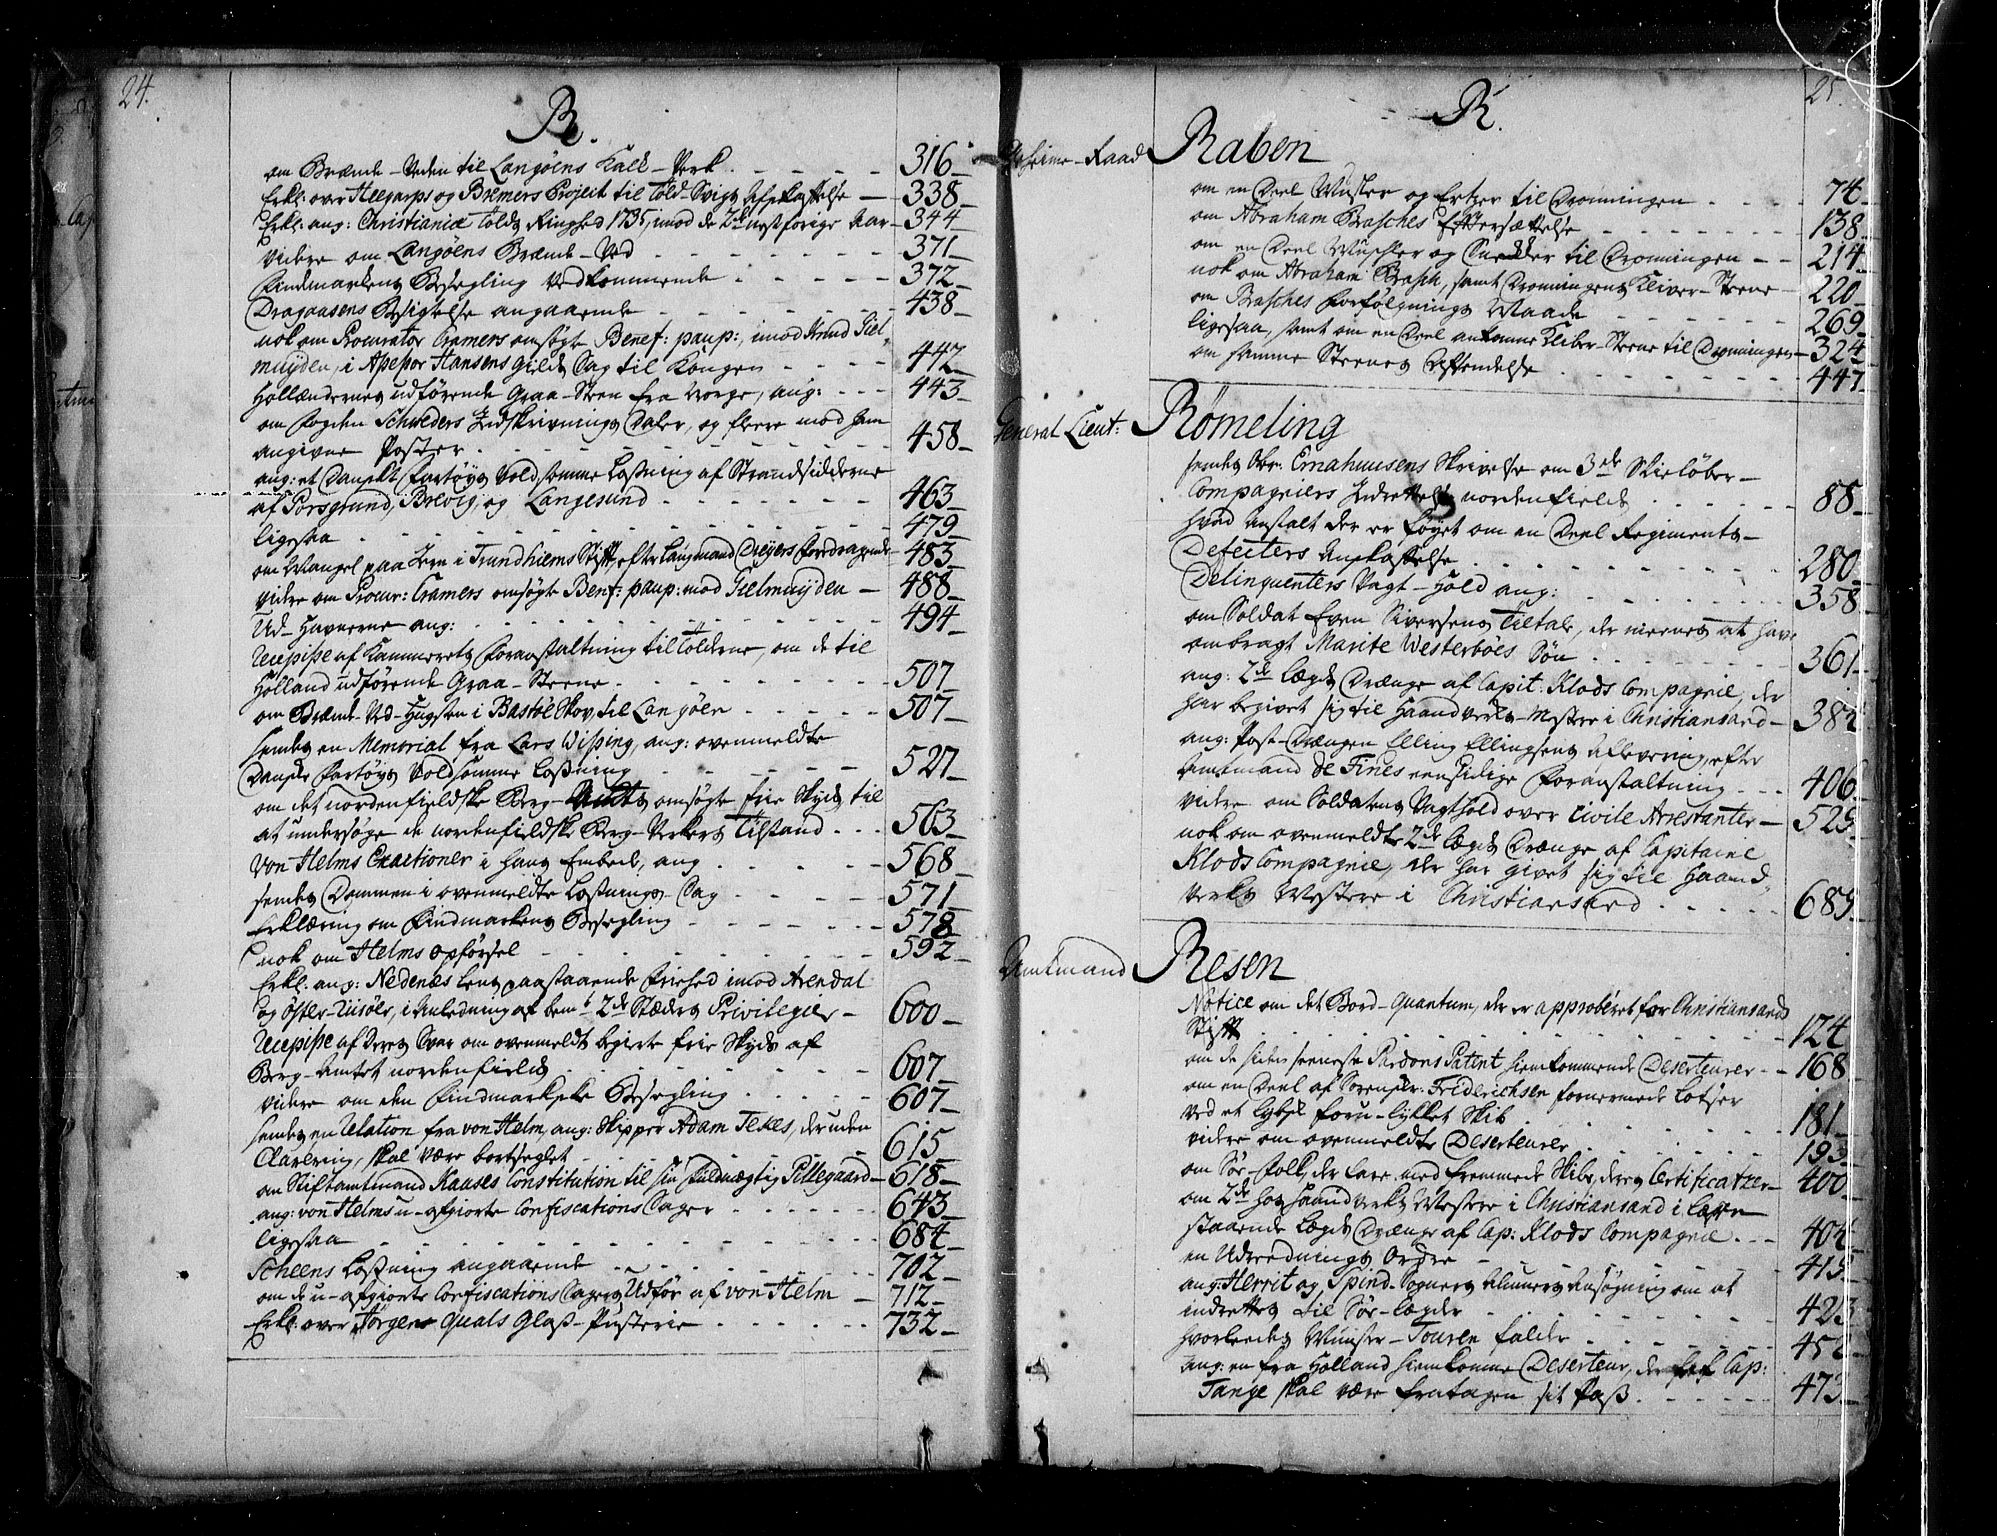 24.
R.
om Brænde-Veden til Langöens Kalk-Verk - - - 316
Erkl: over Heegaards og Bremers Project til Told-Svigs Afskaffelse - 338
Erkl: ang: Christianiæ Tolds Ringhed 1735, imod de 2de næst forige Aar - 344
videre om Langöens Brænde-Ved - - - 371
Findmarkens Besegling Vedkommende - - - 372
Dragaasens Besigtelse angaaende - - - 438
nok om Procurator Cramers ansögte Benef: paup:, imod Knud Tiel-
muyden, i Assessor Hansens Gields Sag til Kongen - - - 442
Hollændernes udförende Graa-Steen fra Norge, ang: - - - 443
om Fogden Schweders Indskrivnings Daler, og flere mod ham
angivne Poster - - - 458
ang: et Danskt Fartöys Voldsomme Losning af Strandsidderne
af Porsgrund, Brevig, og Langesund - - - 463
ligesaa - - - 479
om Mangel paa Korn i Trundhiems Stift, efter Laugmand Dreyers Fordragende - 483
videre om Procur: Cramers ansögte Benef: paup: mod Tielmuyden - 488
Ud-Havnerne ang: - - - 494
Recepisse af Kammerets Foranstaltning til Tolderne, om de til
Holland udförende Graa-Steene - - - 507
om Brænde-Ved-Hugsten i Bastöe Skov til Langöen - - - 507
sendes en Memorial fra Lars Wissing, ang: ovenmeldte
Danske Fartöys Voldsomme Losning - - - 527
om det nordenfieldske Berg-Amts ansögte frie Skyds til
at undersöge de nordenfieldske Berg-Verkers Tilstand - - - 563
Von Helms Exactioner i hans Embede, ang - - - 568
sendes Dommen i ovenmeldte Losnings-Sag - - - 571
Erklæring om Findmarkens Besegling - - - 578
nok om Helms opförsel - - - 592
Erkl: ang: Nedenæs Lens paastaaende Friehed imod Arendal
og Öster-Riisöer, i Anledning af bemte 2de Stæders Privilegier - 600
Recepisse af Deres Svar om ovenmeldt begierte frie Skyds af
Berg-Amtet nordenfields - - - 607
videre om den Findmarkske Besegling - - - 607
sendes en Relation fra von Helm, ang: Skipper Adam Tekes, der uden
Clarering, skal være bortseglet - - - 615
om Stiftamtmand Kaases Constitution til sin Fuldmægtig Pillegaard - 618
ang: von Helms u-afgiorte Confiscations Sager - - - 643
ligesaa - - - 684
Scheens Losning angaaende - - - 702
om de u-afgiorte Confiscations Sagers Udför af von Helm - 712
Erkl: over Jörgen Quals Glas-Pusterie - - - 732
25.
R.
Geheime-Raad Raben
om en Deel Muster og Ertzer til Dronningen - - - 74
om Abraham Brasches Eftersættelse - - - 138
om en Deel Muschler og Snekker til Dronningen - - 214
nok om Abraham Brasch, samt Dronningens Kliver-Steene - 220
om Brasches Forfölgnings Maade - - - 269
ligesaa, samt om en Deel ankomne Kliber-Steene til Dronningen - 324
om samme Steenes Afsendelse - - - 447
General Lieut: Römeling
sendes Obr. Emahuusens Skrivelse om 3de Skielöber-
Compagniers Indrettelse nordenfields - - - 88
hvad Anstalt der er föyet om en Deel Regiments-
Defecters Anskaffelse - - - 280
Delinquenters Vagt-Hold ang: - - - 358
om Soldat Even Siversens Tiltale, der meenes at have
ombragt Marite Westerböes Sön - - - 361
ang: 2de Lægds Drænge af Capit: Klods Compagnie, der
har begivet sig til Haandverks-Mestere i Christiansand - 384
ang: Post-Drængen Elling Ellingsens Aflevering, efter
Amtmand de Fines eensidige Foranstaltning - - - 406
videre om Soldatens Vagthold over Civile Arrestanter - 529
nok om ovenmeldte 2de Lægds Drænge af Capitaine
Klods Compagnie, der har givet sig til Haand-
Verks Mestere i Christiansand - - - 689
Amtmand Resen
Notice om det Bord-Quantum, der er approberet for Christiansands
Stift - - - 124
om de siden seeneste Pardons Patent hiemkommende Deserteurer - - 168
om en Deel af Sorenskr: Friderichsen fornermede Lotser
ved et Lybsk foru-lykket Skib - - - 181
videre om ovenmeldte Deserteurer - - - 193
om Söe-Folk, der fare med fremmede Skibe, deres Certificatzer - 400
om 2de hos Haandverks Mestere i Christiansand i Lære
staaende Lægds Drænge af Cap: Klods Compagnie - - - 404
en Udrednings Ordre - - - 415
ang: Herrit og Spind-Sognes Almues Ansögning om at
indrettes til Söe-lægder - - - 423
hvorledes Mynster-Touren falder - - - 452
ang: en fra Holland hiemkomne Deserteur, der af Cap:
Tange skal være fratagen sit Pass - - - 473